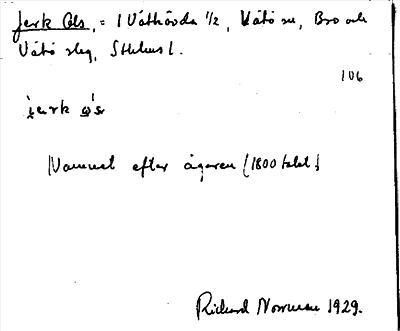 Jerk Ols, = 1 Váthövda 1/2, Vätö sn, Bro och
Vätö slg, Sthlms l.
106
jerk ω's
Namnet efter ägaren (1800 talet)
Richard Norrman 1929.